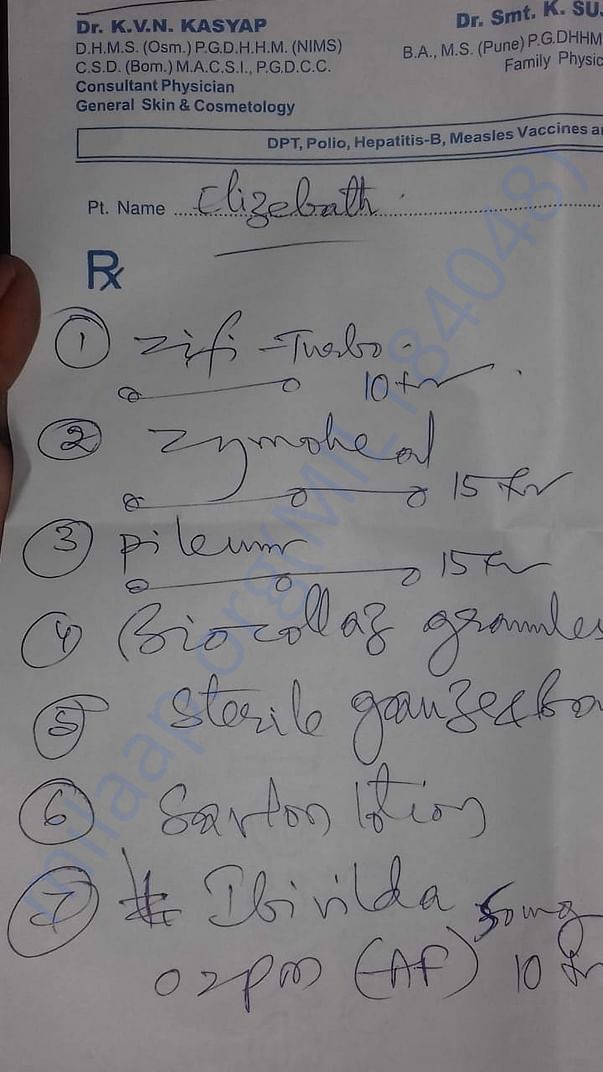 Dr. K.V.N. KASYAP
D.H.M.S. (Osm.) P.G.D.H.H.M. (NIMS)
C.S.D. (Bom.) M.A.C.S.I., P.G.D.C.C.
Consultant Physician
General Skin & Cosmetology
Dr. Smt. K. SU
B.A., M.S. (Pune) P.G.DHHM
Family Physic
DPT, Polio, Hepatitis-B, Measles Vaccines a
Pt. Name Elizebath
Rx
1 Zifi-Turbo
10
2 Zymoheal
15
3 Pileum
15
4 Biocollaz granules
5 Sterile
6 Savlon lotion
7 Ibivilda 50mg
(AF) 10
milaap.org(MIL184048)